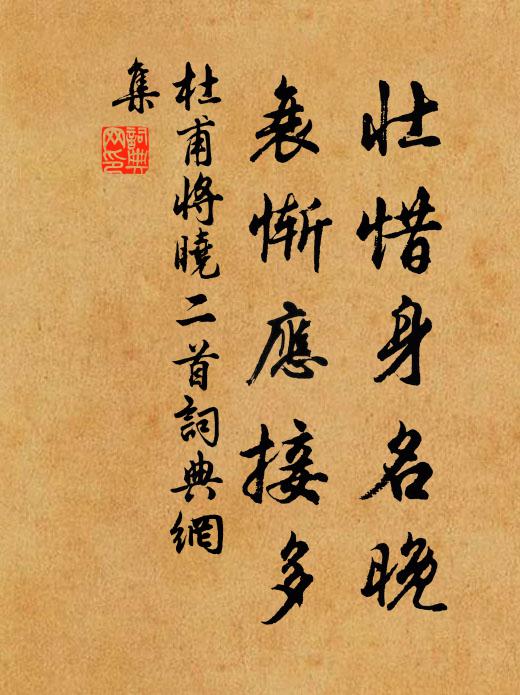 壯惜身名晚
衰慚應接多
杜甫將曉二首詞典網
集
詞典
网印